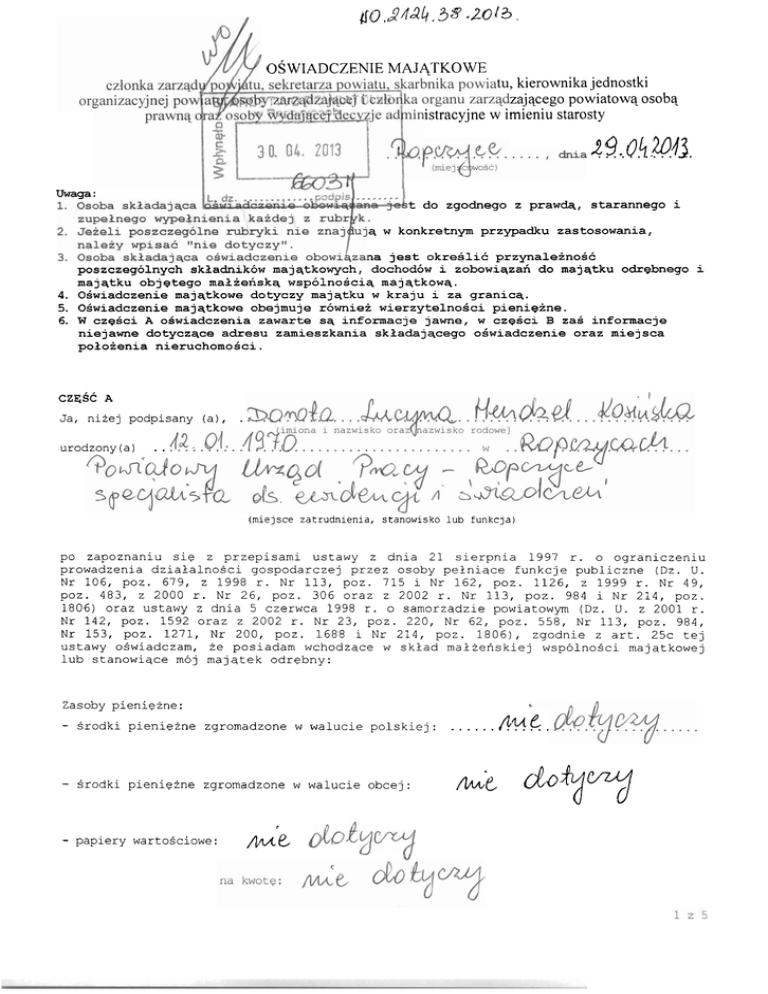 WO.2124.38.2013.
OŚWIADCZENIE MAJĄTKOWE
członka zarządu powiatu, sekretarza powiatu, skarbnika powiatu, kierownika jednostki
organizacyjnej powiatu, osoby zarządzającej i członka organu zarządzającego powiatową osobą
prawną oraz osoby wydającej decyzje administracyjne w imieniu starosty
Wpłynęło
30. 04. 2013
6603
L. dz. .............podpis........
Ropczyce........, dnia 29.04.2013.
(miejscowość)
Uwaga:
1. Osoba składająca oświadczenie obowiązana jest do zgodnego z prawdą, starannego i
zupełnego wypełnienia każdej z rubryk.
2. Jeżeli poszczególne rubryki nie znajdują w konkretnym przypadku zastosowania,
należy wpisać "nie dotyczy".
3. Osoba składająca oświadczenie obowiązana jest określić przynależność
poszczególnych składników majątkowych, dochodów i zobowiązań do majątku odrębnego i
majątku objętego małżeńską wspólnością majątkową.
4. Oświadczenie majątkowe dotyczy majątku w kraju i za granicą.
5. Oświadczenie majątkowe obejmuje również wierzytelności pieniężne.
6. W części A oświadczenia zawarte są informacje jawne, w części B zaś informacje
niejawne dotyczące adresu zamieszkania składającego oświadczenie oraz miejsca
położenia nieruchomości.
CZĘŚĆ A
Ja, niżej podpisany (a), ..Danota Lucyna Hendzel Kosińska
(imiona i nazwisko oraz nazwisko rodowe)
urodzony(a) ..12.01.1970.......................... w ..Ropczycach...
Powiatowy Urząd Pracy – Ropczyce
specjalista ds. ewidencji i świadczeń
(miejsce zatrudnienia, stanowisko lub funkcja)
po zapoznaniu się z przepisami ustawy z dnia 21 sierpnia 1997 r. o ograniczeniu
prowadzenia działalności gospodarczej przez osoby pełniące funkcje publiczne (Dz. U.
Nr 106, poz. 679, z 1998 r. Nr 113, poz. 715 i Nr 162, poz. 1126, z 1999 r. Nr 49,
poz. 483, z 2000 r. Nr 26, poz. 306 oraz z 2002 r. Nr 113, poz. 984 i Nr 214, poz.
1806) oraz ustawy z dnia 5 czerwca 1998 r. o samorządzie powiatowym (Dz. U. z 2001 r.
Nr 142, poz. 1592 oraz z 2002 r. Nr 23, poz. 220, Nr 62, poz. 558, Nr 113, poz. 984,
Nr 153, poz. 1271, Nr 200, poz. 1688 i Nr 214, poz. 1806), zgodnie z art. 25c tej
ustawy oświadczam, że posiadam wchodzące w skład małżeńskiej wspólności majątkowej
lub stanowiące mój majątek odrębny:
Zasoby pieniężne:
- środki pieniężne zgromadzone w walucie polskiej: ......nie dotyczy.....
- środki pieniężne zgromadzone w walucie obcej: nie dotyczy
- papiery wartościowe: nie dotyczy
na kwotę: nie dotyczy
1 z 5